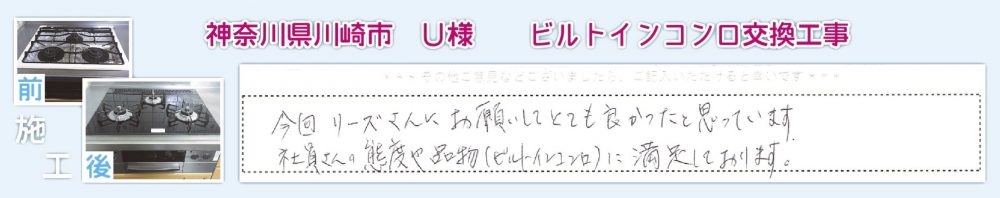 神奈川県川崎市 U様 ビルトインコンロ交換工事
前
施
工
後
*** その他ご意見などございましたら、ご記入いただけると幸いです ***
今回 リーズさんに お願いしてとても良かったと思っています。
社員さんの態度や品物(ビルトインコンロ)に満足しております。